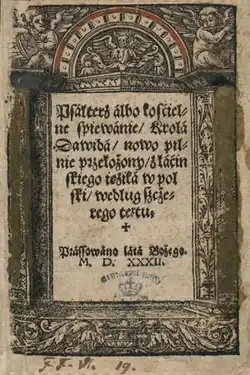 Psałterz álbo kościel-
ne śpiewánie/ Krolá
Dawidá/ nowo pil-
nie przełożony/ z łáciń
skiego ięzyká w pol
ski/ według szcże-
rego textu.
Prássowano látá Bożego.
M. D. XXXII.
F. F. VI. 19.